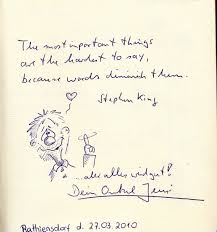 The most important things
are the hardest to say,
because words diminish them.
Stephen King
...aber alles wird gut!
Dein Onkel
Rathiensdorf d. 27.03.2010